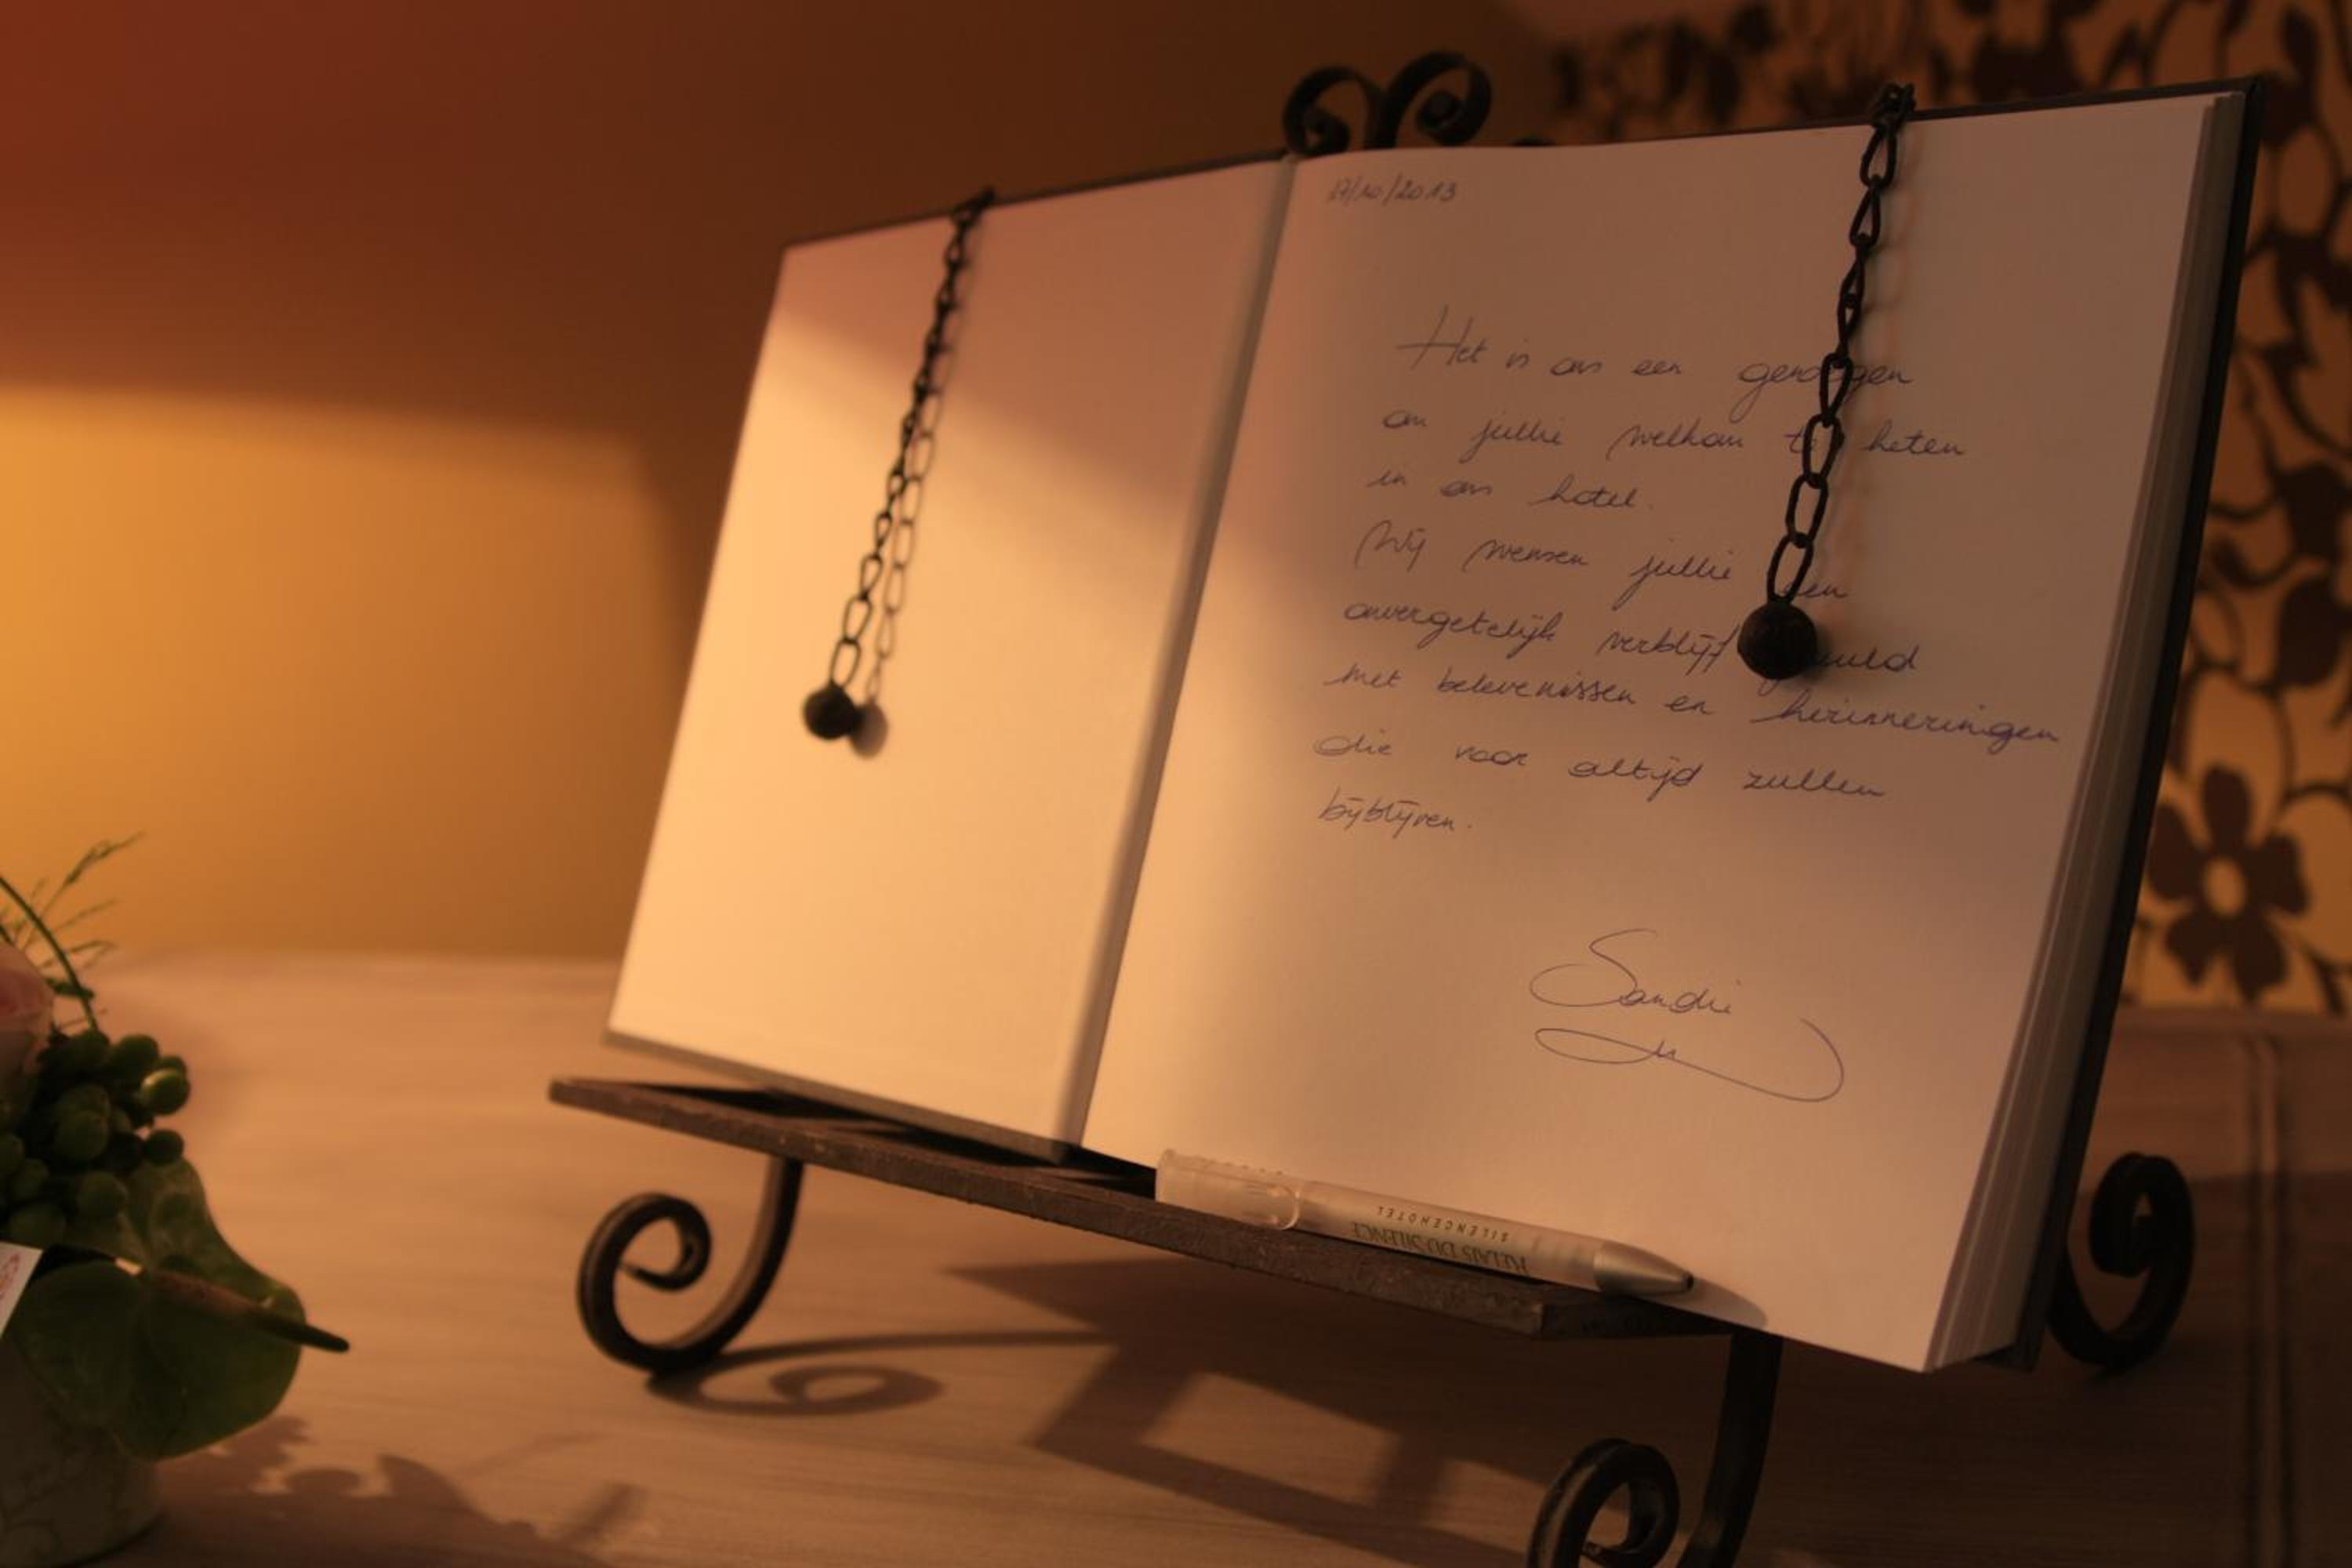 17/10/2013
Het is ons een genoegen
om jullie welkom te heten
in ons hotel.
Wij wensen jullie een
onvergetelijk verblijf gevuld
met belevenissen en herinneringen
die voor altijd zullen
bijblijven.
Sandri
SILENCEHOTEL
RELAIS DU SILENCE